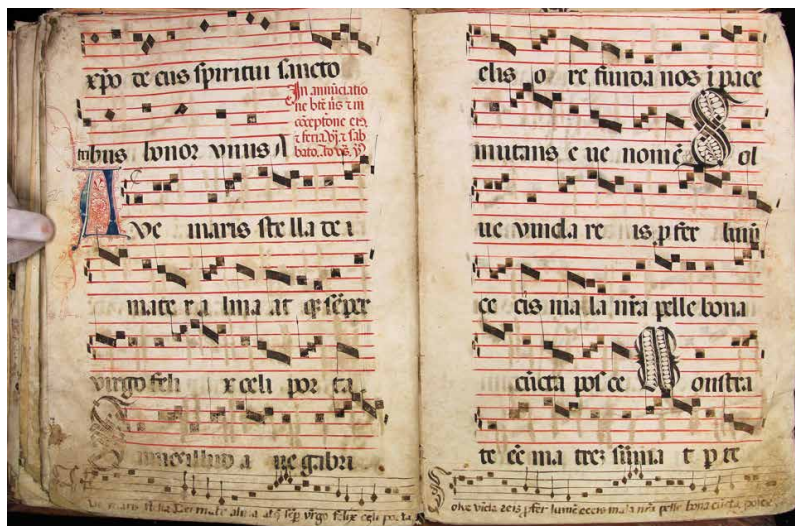 xp̄o de cus spiritui sancto
In annūciatio
ne bt̄e
cōceptone eiꝰ
⁊ feria vij ⁊ sab
bato
tribus honor vnus A
Ave maris stella de i
mate r a lma at qꝫ sēper
virgo feli x celi por ta
Sumens illud a ue gabri
Ave maris stella Dei mater alma atqꝫ sēp virgo felix celi porta
elis o re funda nos ī pace
mutans e ue nomē Sol
ue vincla re is ꝓfer lumē
ce cis ma la nr̄a pelle bona
cūcta posce Monstra
te eē ma trez suma t p re
Solue vīcla reis ꝓfer lumē cecis mala nr̄a pelle bona cūcta posce